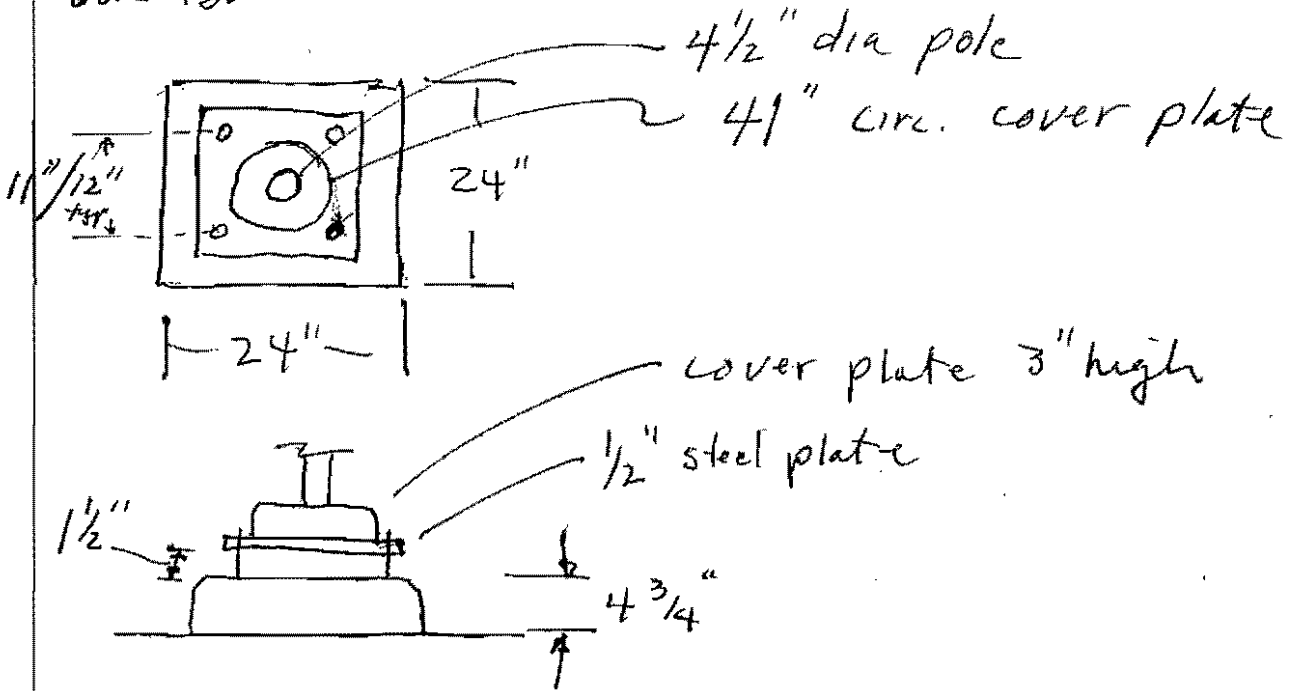 4½" dia pole
41" circ. cover plate
11"/12"
24"
24"
cover plate 3" high
½" steel plate
1½"
4 ¾"